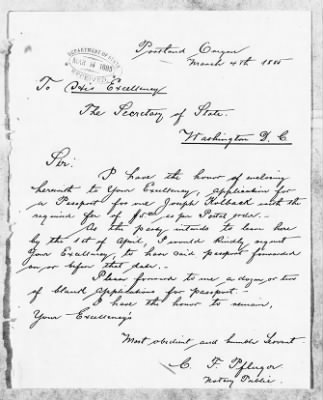 Portland Oregon
March 4th 1885
DEPARTMENT OF STATE
MAR 14 1885
RECEIVED
To His Excellency
The Secretary of State.
Washington D. C.
Sir:
I have the honor of enclosing
herewith to Your Excellency, application for
a Passport for one Joseph Kolback with the
required fee of as per Postal order.-
As the party intends to leave here
by the 1st of April, I would kindly request
Your Excellency, to have said passport forwarded
on or before that date.-
Please forward to me a dozen or two
of blank applications for passport.-
I have the honor to remain,
Your Excellency's
Most obedient and humble Servant
C. F. Pfluger
Notary Public.